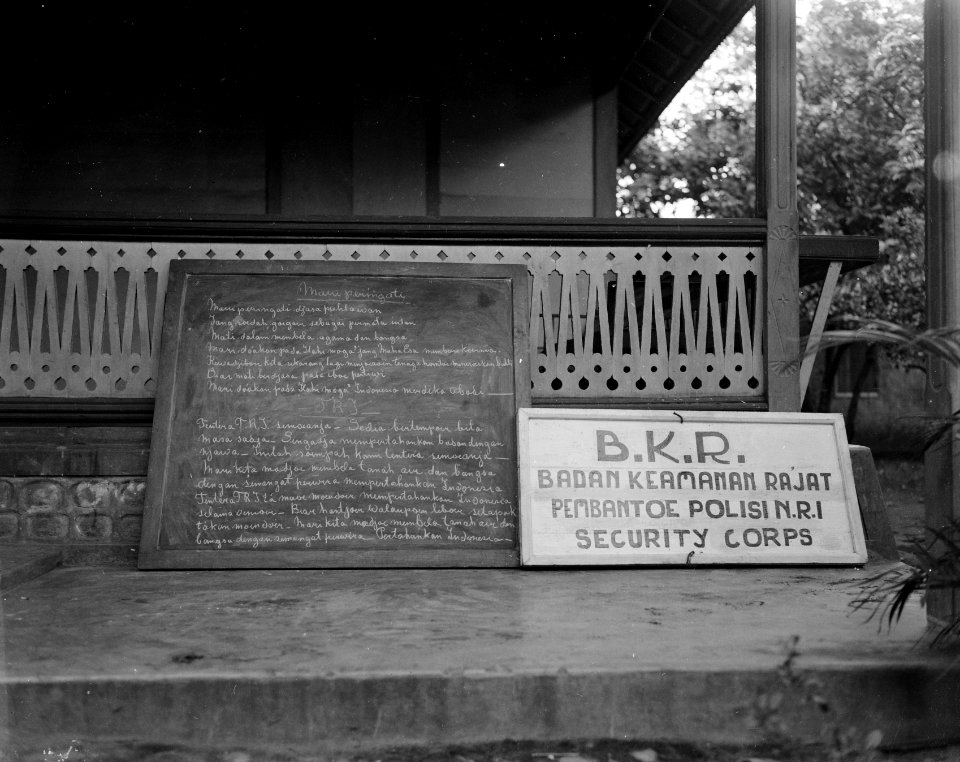 Mari peringati
Mari peringati djasa pahlawan
Jang soedah goegoer sebagai permata intan
Mati dalam membela agama dan bangsa
Mari doakan pada Ilahi moga² jang Maha Esa
Kewadjiban kita sekarang lagi
Biar mati berdjasa pada iboe pertiwi
Mari doakan pada Illahi moga² Indonesia merdika
T.R.I.
Tentera T.R.I. semoeanja - Sedia bertempoer bila
masa sadja - Sengadja mempertahankan badan dengan
njawa - Inilah soempah kami tentera semoeanja -
Mari kita madjoe membela tanah air dan bangsa
dengan semangat perwira mempertahankan Indonesia
Tentera T.R.I. ta' maoe moendoer mempertahankan Indonesia
selama oemoer - Biar hantjoer walaupoen leboer setapak
ta'kan moendoer - Mari kita madjoe membela tanah air dan
bangsa dengan semangat perwira Pertahankan Indonesia
B.K.R.
BADAN KEAMANAN RAJAT
PEMBANTOE POLISI N.R.I
SECURITY CORPS